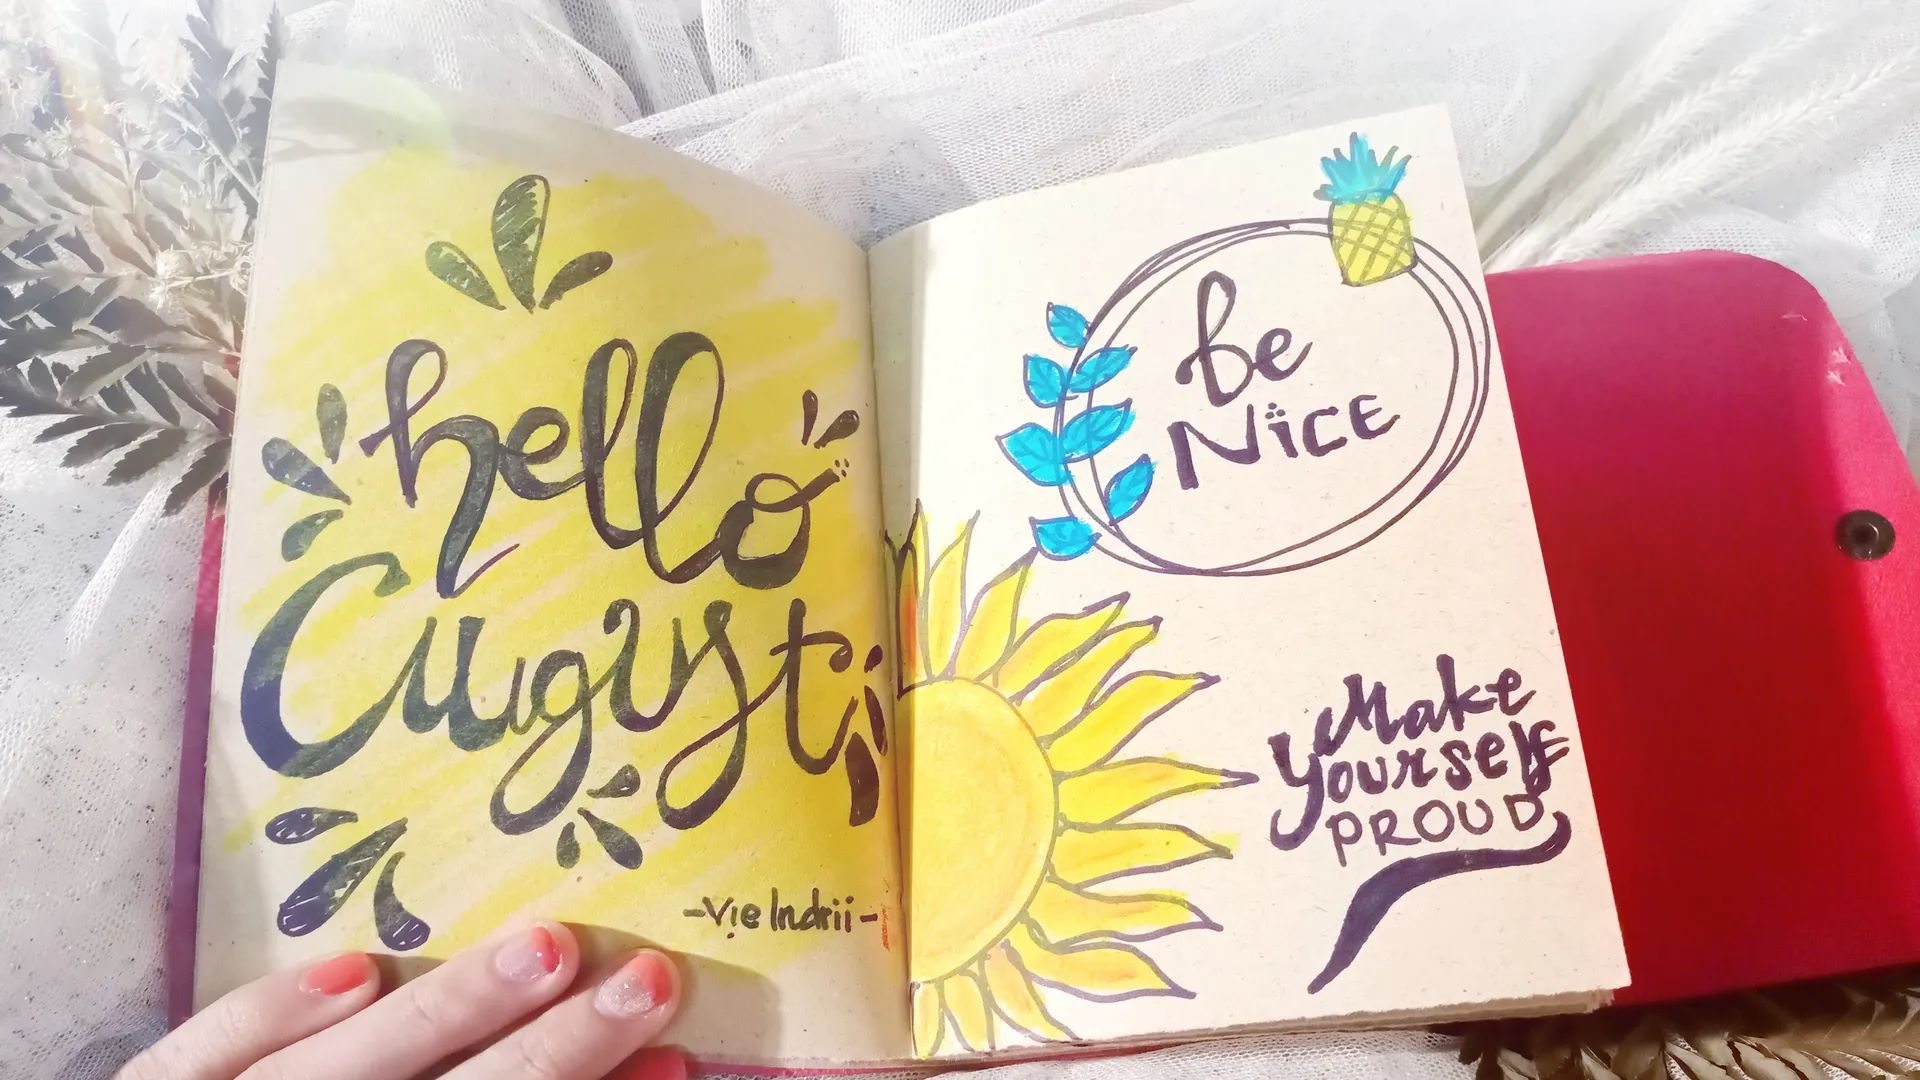 hello
August
-Vie Indrii-
be
NiCE
Make
yourself
PROUD